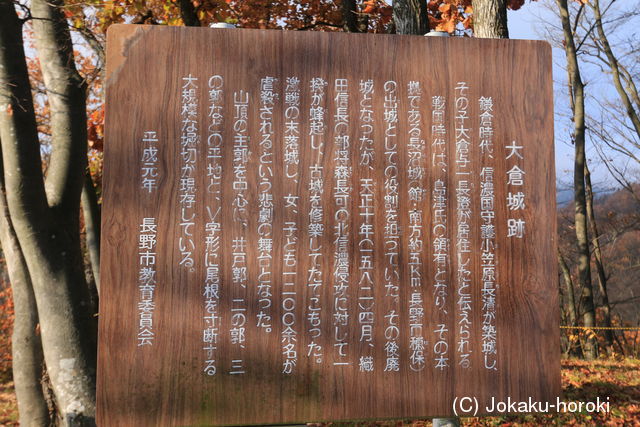 大倉城跡
鎌倉時代、信濃国守護小笠原長清が築城し、
その子大倉与一長澄が居住したと伝えられる。
戦国時代は、島津氏の領有となり、その本
拠である長沼城(館・南方約五km・長野市穂保)
の出城としての役割を担っていた。その後廃
城となったが、天正十年(一五八二)四月、織
田信長の部将森長可の北信濃侵攻に対して一
揆が蜂起し、古城を修築してたてこもった。
激戦の末落城し、女、子ども一二〇〇余名が
虐殺されるという悲劇の舞台となった。
山頂の主郭を中心に、井戸郭、二の郭、三
の郭などの平地と、V字形に尾根を寸断する
大規模な堀切が現存している。
平成元年 長野市教育委員会
(C) Jokaku-horoki